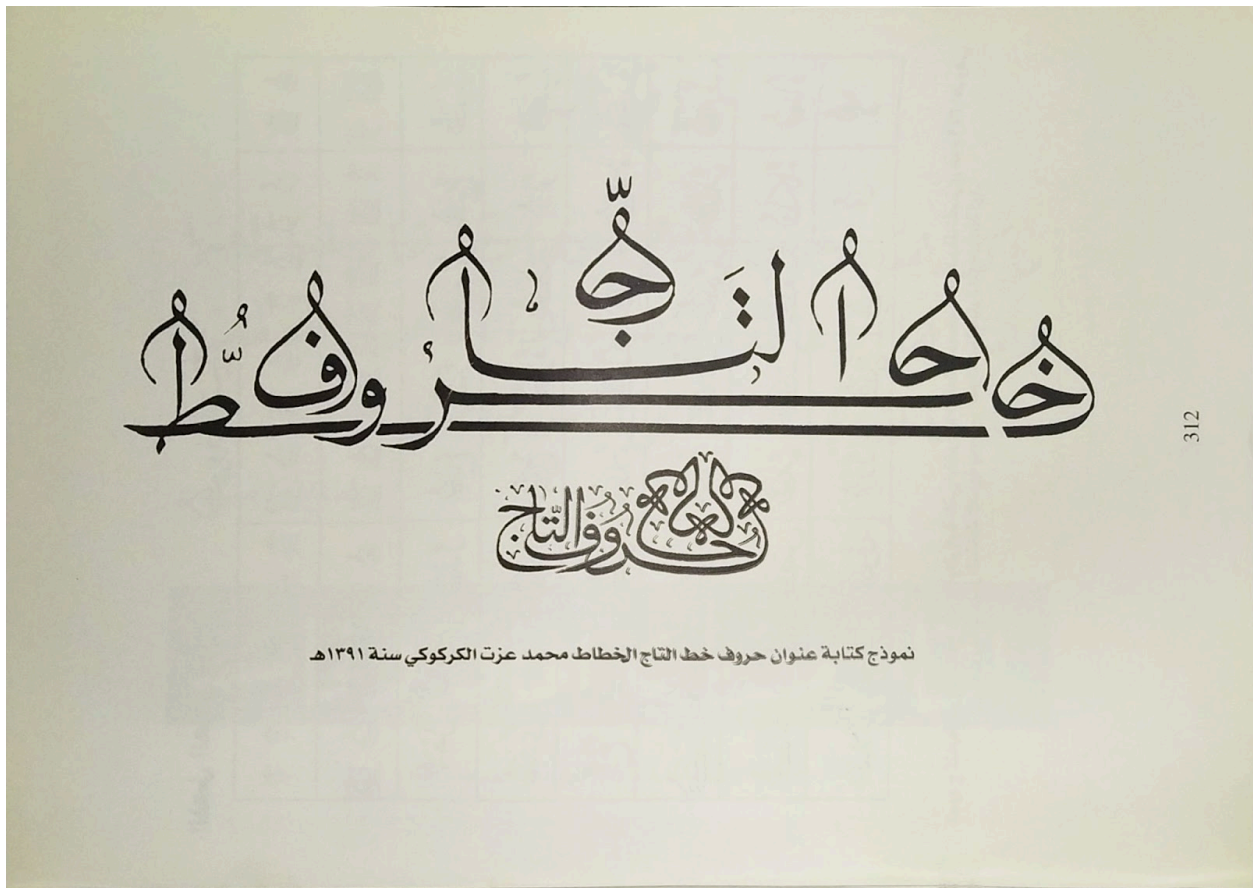 حروف خط التاج
حروف التاج
نموذج كتابة عنوان حروف خط التاج الخطاط محمد عزت الكركوكي سنة ١٣٩١هـ
312